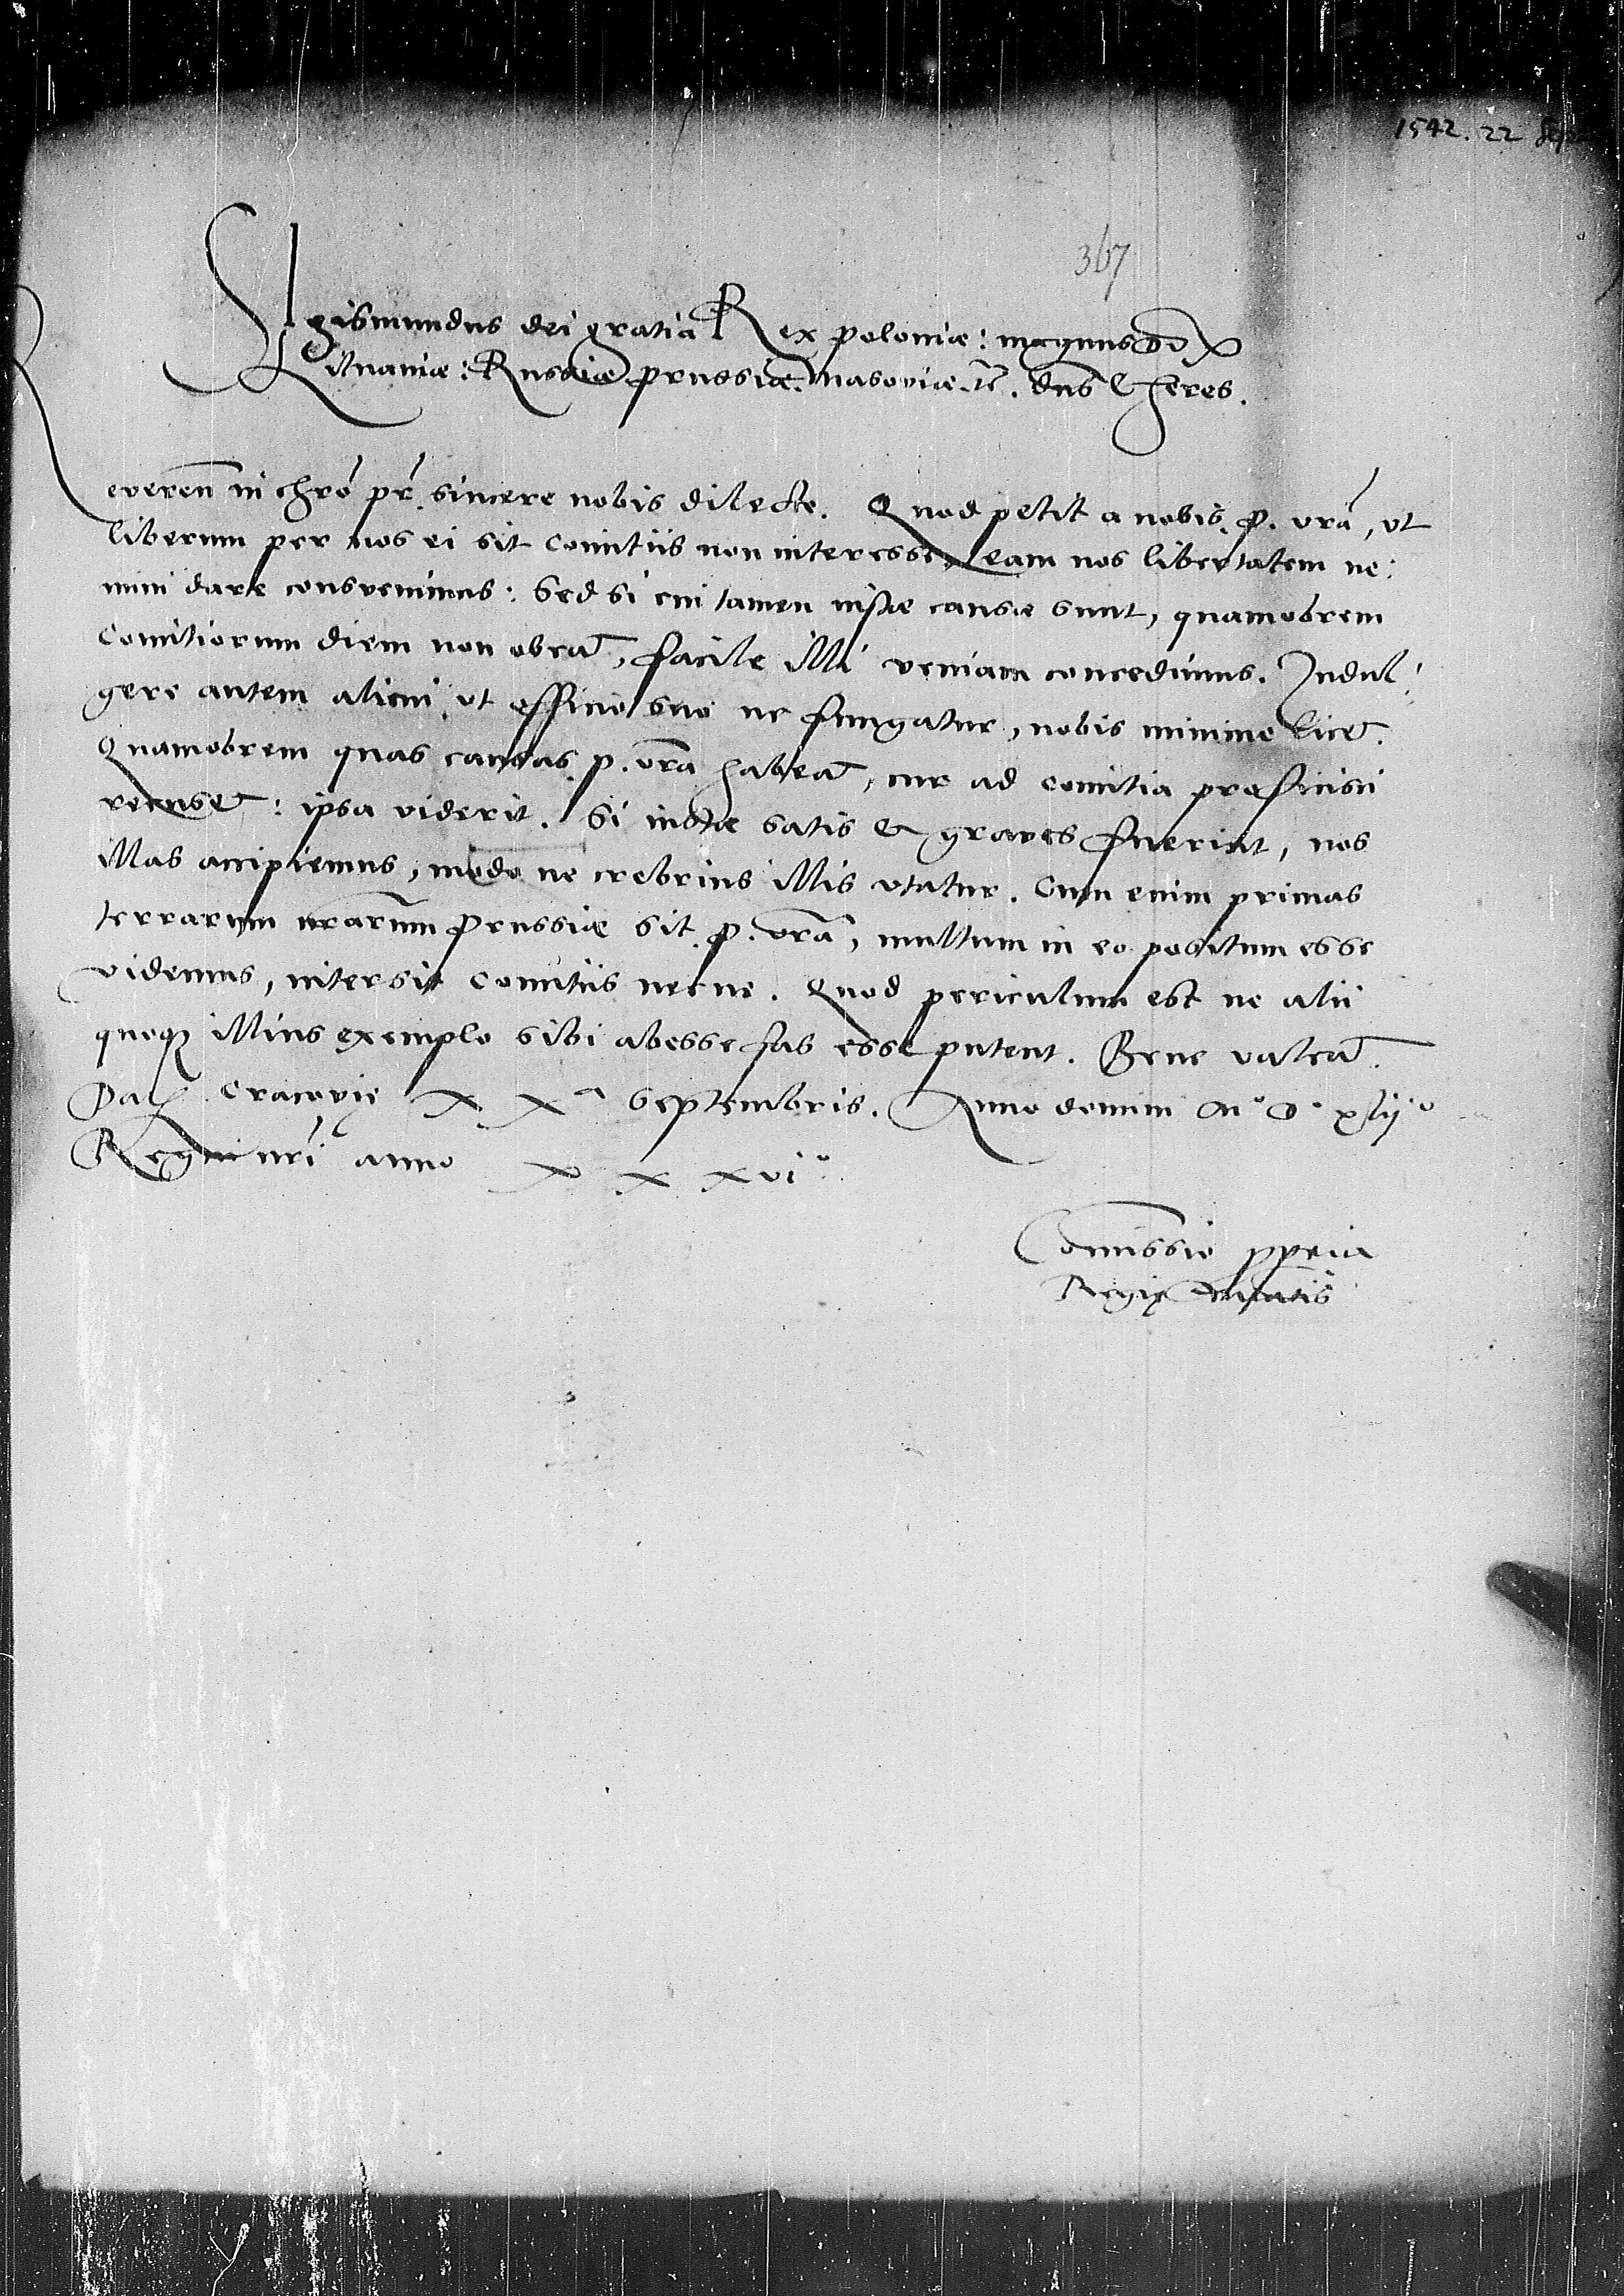 1542. 22 Sep
367
Sigismundus dei gratia Rex poloniæ: magnus Dux
Lituaniæ: Russiæ prussiæ. masoviæ etc. dns & heres.
Reveren in chro pr. sincere nobis dilecte. Quod petit a nobis. p. vra, ut
liberum per nos ei sit comitiis non interesse, eam nos libertatem ne:
mini dare consuevimus: Sed si cui tamen iustæ causæ sunt, quamobrem
comitiorum diem non obeat, facile illi veniam concedimus. Indul:
gere autem alicui ut officio suo ne fungatur, nobis minime licet.
Quamobrem quas causas. p. vra habeat, cur ad comitia proficisci
recuset: ipsa viderit. Si iustæ satis & graves fuerint, nos
illas accipiemus, modo ne crebrius illis utatur. Cum enim primas
terrarum nrarum Prussiæ sit. p. vra, multum in eo positum esse
videmus, intersit comitiis necne. Quod periculum est ne alii
quoq illius exemplo sibi abesse fas esse putent. Bene valeat.
Dat Cracovię XXa Septembris. Anno domini Mo Do xlijo
Regni nri anno XXXvio
Comissio ppria
Regię Maiestatis